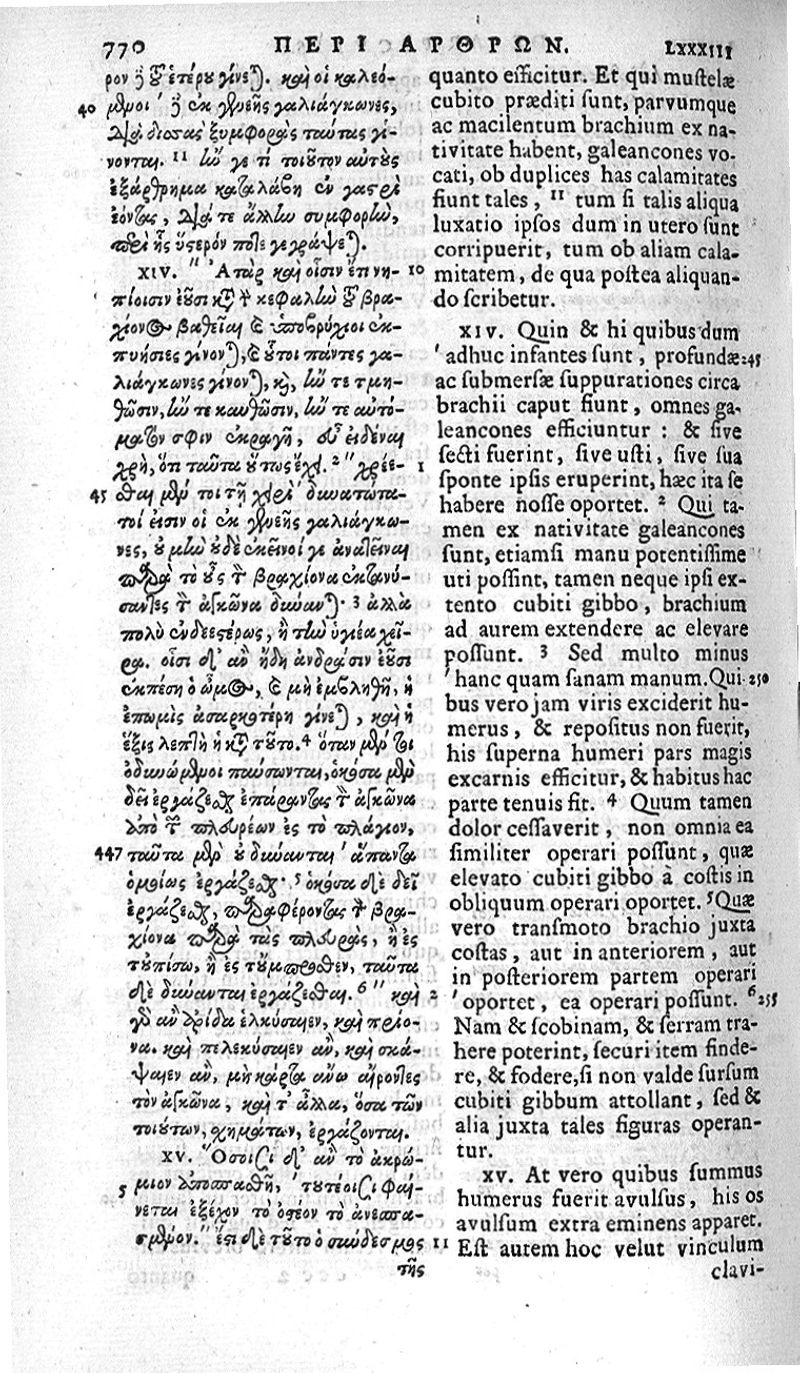 770 ΠΕΡΙ ΑΡΘΡΩΝ. LXXXIII
ρον ἢ τοῦ ἑτέρου γίνεται. καὶ οἱ καλεό-
40 μενοι ' ἢ ἐκ γενεῆς γαλιάγκωνες,
διὰ δισσὰς ξυμφορὰς ταύτας γί-
νονται. 11 ἤν γε τί τοιοῦτον αὐτοὺς
ἐξάρθρημα καταλάβῃ ἐν γαστρὶ
ἐόντας, διά τε ἄλλην συμφορὴν,
περὶ ἧς ὕστερόν ποτε γεγράψεται.
XIV. " Ἀτὰρ καὶ οἷσιν ἔτι νη-
πίοισιν ἐοῦσι κατὰ τὴν κεφαλὴν τοῦ βρα-
χίονος βαθεῖαι καὶ ὑποβρύχιοι ἐκ-
πυήσιες γίνονται, καὶ οὗτοι πάντες γα-
λιάγκωνες γίνονται, καὶ, ἤν τε τμη-
θῶσιν, ἤν τε καυθῶσιν, ἤν τε αὐτό-
ματόν σφιν ἐκραγῇ, εὖ εἰδέναι
χρὴ, ὅτι ταῦτα οὕτως ἔχει. 2 " χρέε-
45 σθαι μέν τοι τῇ χειρὶ δυνατώτα-
τοί εἰσιν οἱ ἐκ γενεῆς γαλιάγκω-
νες, οὐ μὴν οὐδὲ ἐκεῖνοί γε ἀνατεῖναι
παρὰ τὸ οὖς τὸν βραχίονα ἐκτανύ-
σαντες τὸν ἀγκῶνα δύνανται· 3 ἀλλὰ
πολὺ ἐνδεεστέρως, ἢ τὴν ὑγιέα χεῖ-
ρα. οἷσι δ' ἂν ἤδη ἀνδράσιν ἐοῦσι
ἐκπέσῃ ὁ ὦμος, καὶ μὴ ἐμβληθῇ, ἡ
ἐπωμὶς ἀσαρκοτέρη γίνεται, καὶ ἡ
ἕξις λεπτὴ ἡ κατὰ τοῦτο. 4 ὅταν μέν τοι
ὀδυνώμενοι παύσωνται, ὁκόσα μὲν
δεῖ ἐργάζεσθαι ἐπάραντας τὸν ἀγκῶνα
ἀπὸ τῶν πλευρέων ἐς τὸ πλάγιον,
447 ταῦτα μὲν οὐ δύνανται ' ἅπαντα
ὁμοίως ἐργάζεσθαι· 5 ὁκόσα δὲ δεῖ
ἐργάζεσθαι, παραφέροντας τὸν βρα-
χίονα παρὰ τὰς πλευρὰς, ἢ ἐς
τοὐπίσω, ἢ ἐς τοὔμπροσθεν, ταῦτα
δὲ δύνανται ἐργάζεσθαι. 6 " καὶ
γὰρ ἂν ἀρίδα ἑλκύσαιεν, καὶ πρίο-
να. καὶ πελεκύσαιεν ἂν, καὶ σκά-
ψαιεν ἂν, μὴ κάρτα ἄνω αἴροντες
τὸν ἀγκῶνα, καὶ τ' ἄλλα, ὅσα τῶν
τοιούτων, σχημάτων, ἐργάζονται.
XV. "Ὅσοισι δ' ἂν τὸ ἀκρώ-
5 μιον ἀποσπασθῇ, τουτέοισι φαί-
νεται ἐξέχον τὸ ὀστέον τὸ ἀνεσπα-
σμένον. " ἔστι δὲ τοῦτο ὁ σύνδεσμος
τῆς
quanto efficitur. Et qui mustelæ
cubito præditi sunt, parvumque
ac macilentum brachium ex na-
tivitate habent, galeancones vo-
cati, ob duplices has calamitates
fiunt tales, 11 tum si talis aliqua
luxatio ipsos dum in utero sunt
corripuerit, tum ob aliam cala-
10 mitatem, de qua postea aliquan-
do scribetur.
XIV. Quin & hi quibus dum
' adhuc infantes sunt, profundæ 245
ac submersæ suppurationes circa
brachii caput fiunt, omnes ga-
leancones efficiuntur : & sive
secti fuerint, sive usti, sive sua
1 sponte ipsis eruperint, hæc ita se
habere nosse oportet. 2 Qui ta-
men ex nativitate galeancones
sunt, etiamsi manu potentissime
uti possint, tamen neque ipsi ex-
tento cubiti gibbo, brachium
ad aurem extendere ac elevare
possunt. 3 Sed multo minus
' hanc quam sanam manum. Qui- 250
bus vero jam viris exciderit hu-
merus, & repositus non fuerit,
his superna humeri pars magis
excarnis efficitur, & habitus hac
parte tenuis fit. 4 Quum tamen
dolor cessaverit, non omnia ea
similiter operari possunt, quæ
elevato cubiti gibbo à costis in
obliquum operari oportet. 5 Quæ
vero transmoto brachio juxta
costas, aut in anteriorem, aut
in posteriorem partem operari
2 ' oportet, ea operari possunt. 6 255
Nam & scobinam, & serram tra-
here poterint, securi item finde-
re, & fodere, si non valde sursum
cubiti gibbum attollant, sed &
alia juxta tales figuras operan-
tur.
XV. At vero quibus summus
humerus fuerit avulsus, his os
avulsum extra eminens apparet.
11 Est autem hoc velut vinculum
clavi-